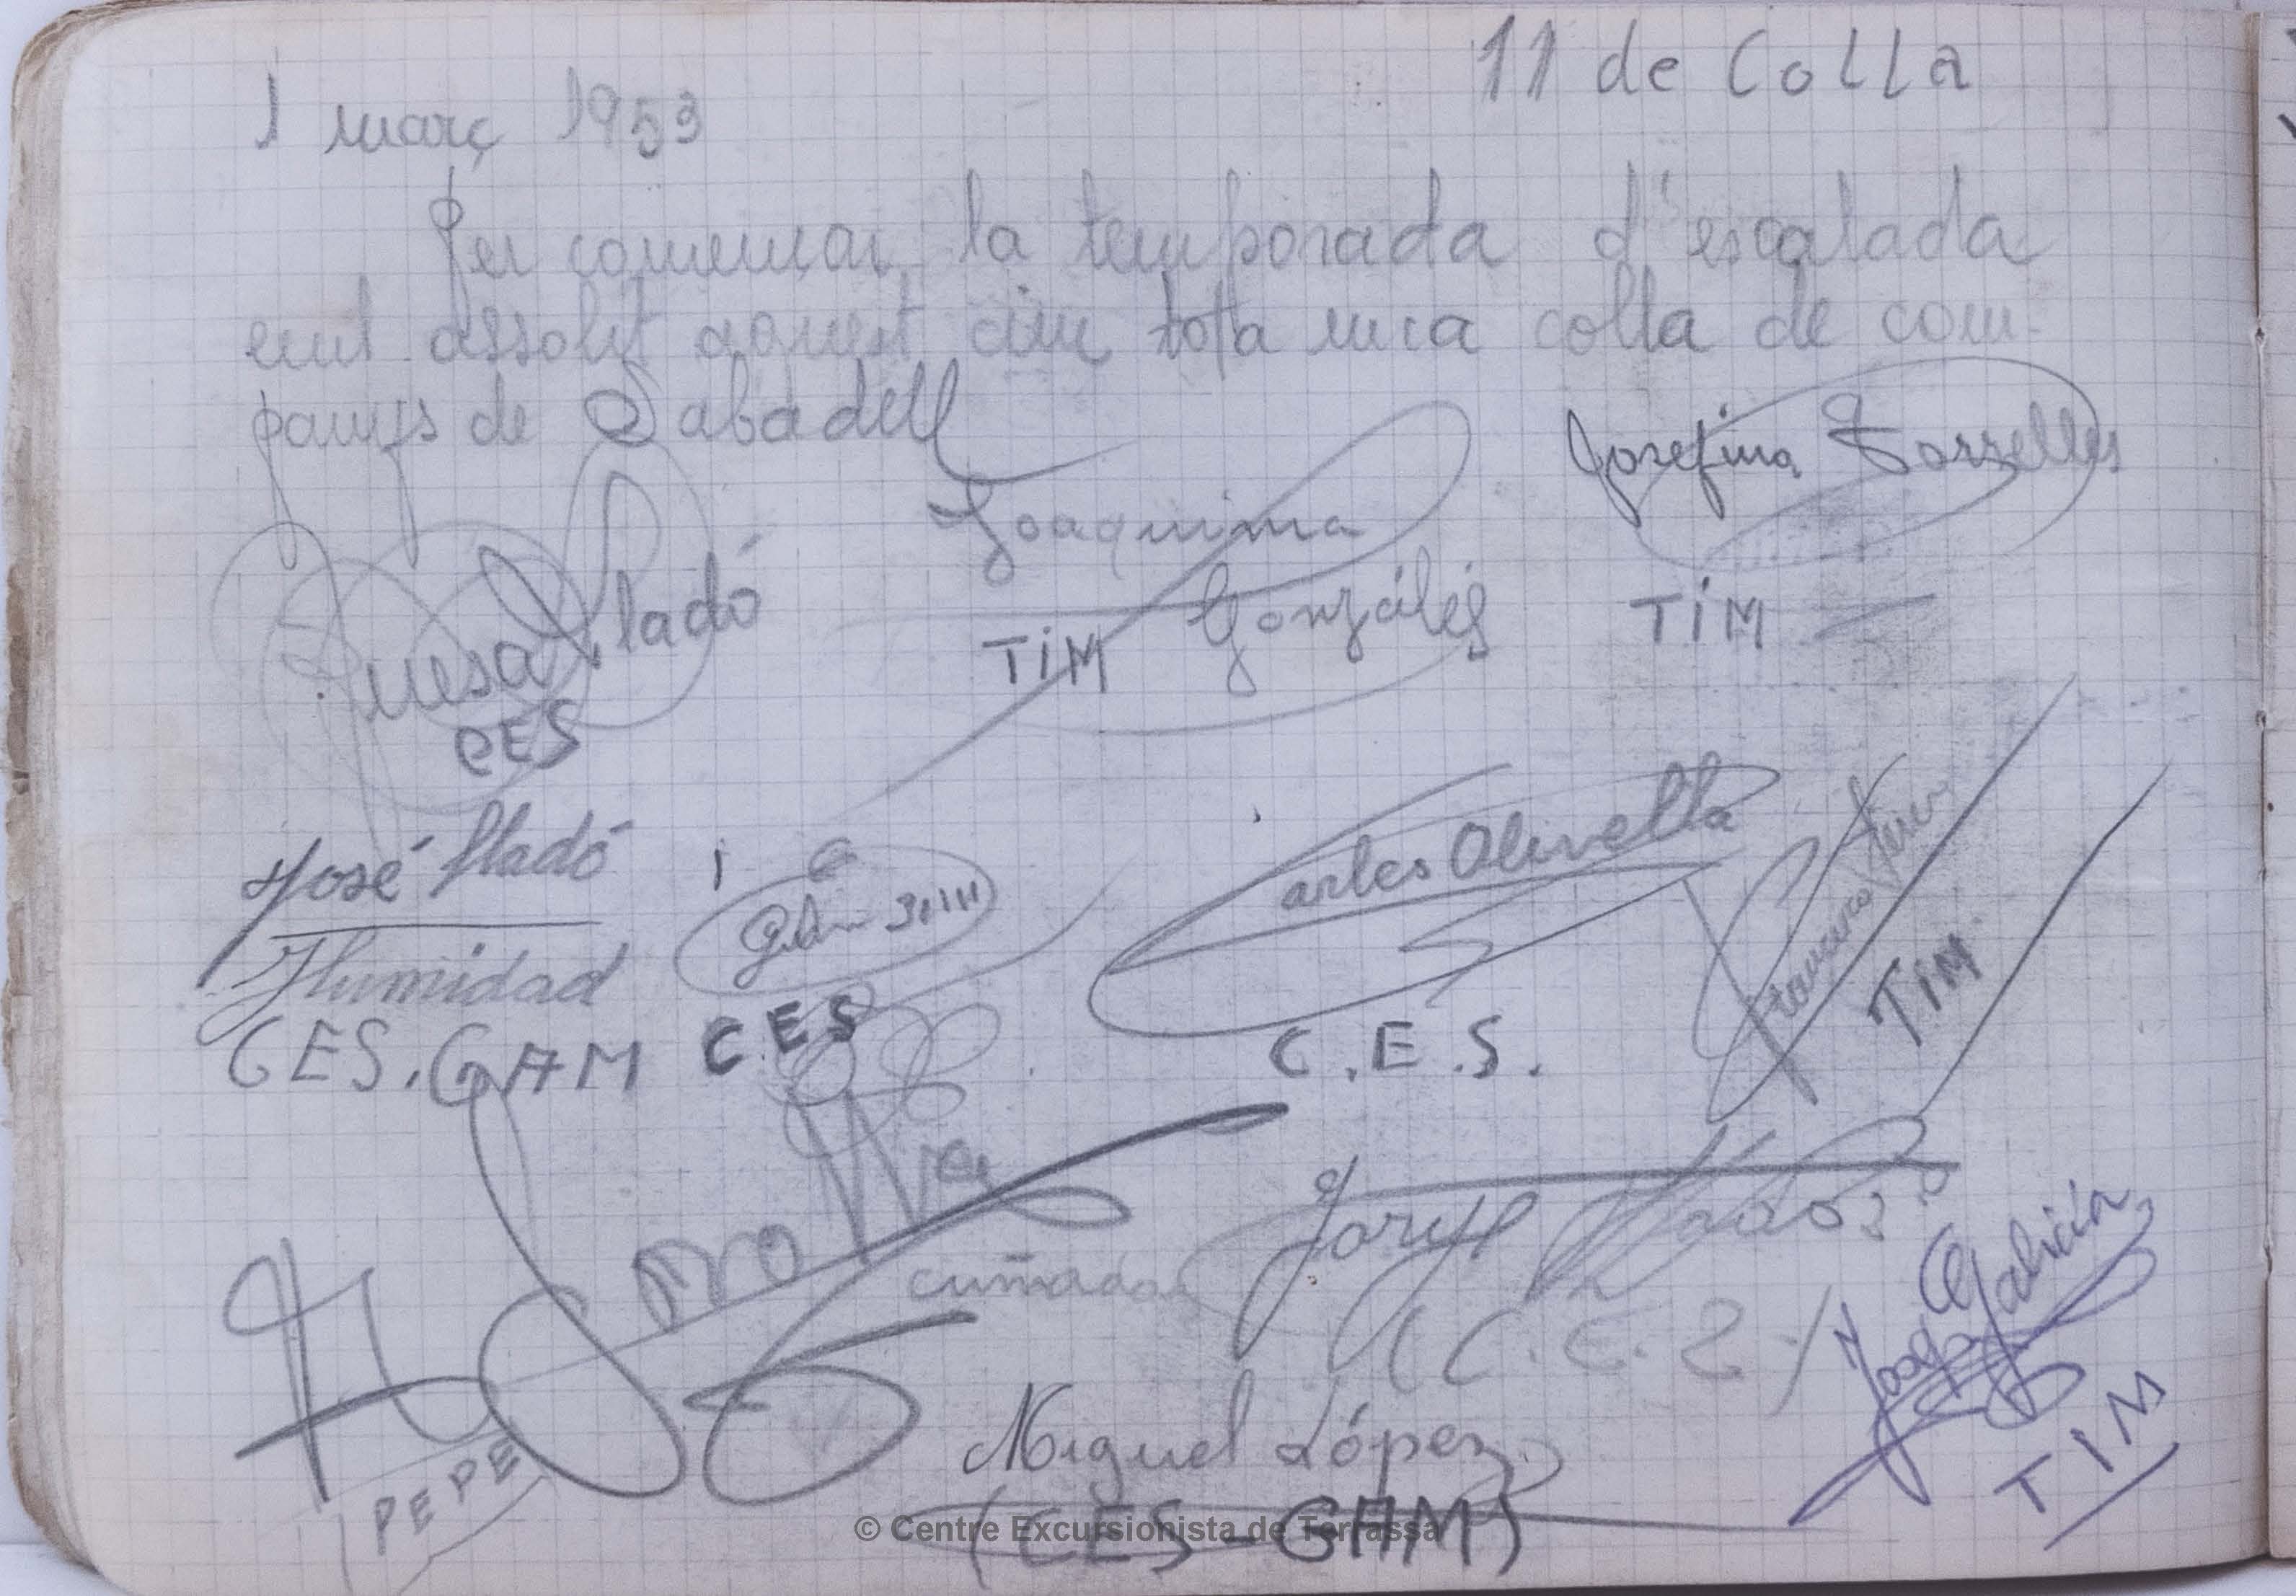 11 de Colla
1 març 1953
Per començar la temporada d'escalada
em assolit aquest cim tota una colla de com-
panys de Sabadell
Joaquima
Gonzáles
TIM
Josefina Torrelles
TIM
Lladó
CES
José Lladó
Humidad
CES. GAM
CES
Carles Olivella
C.E.S.
TIM
cuñada
PEPE
Miguel López
(CES-GAM)
Joaq Galicia
TIM
© Centre Excursionista de Terrassa